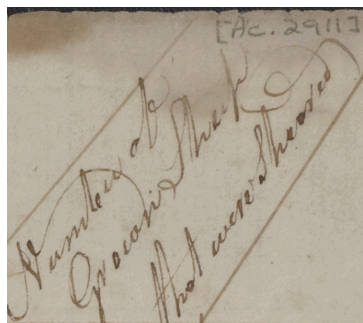 [Ac. 2911]
Number of
Grown Sheep
that were Sheared